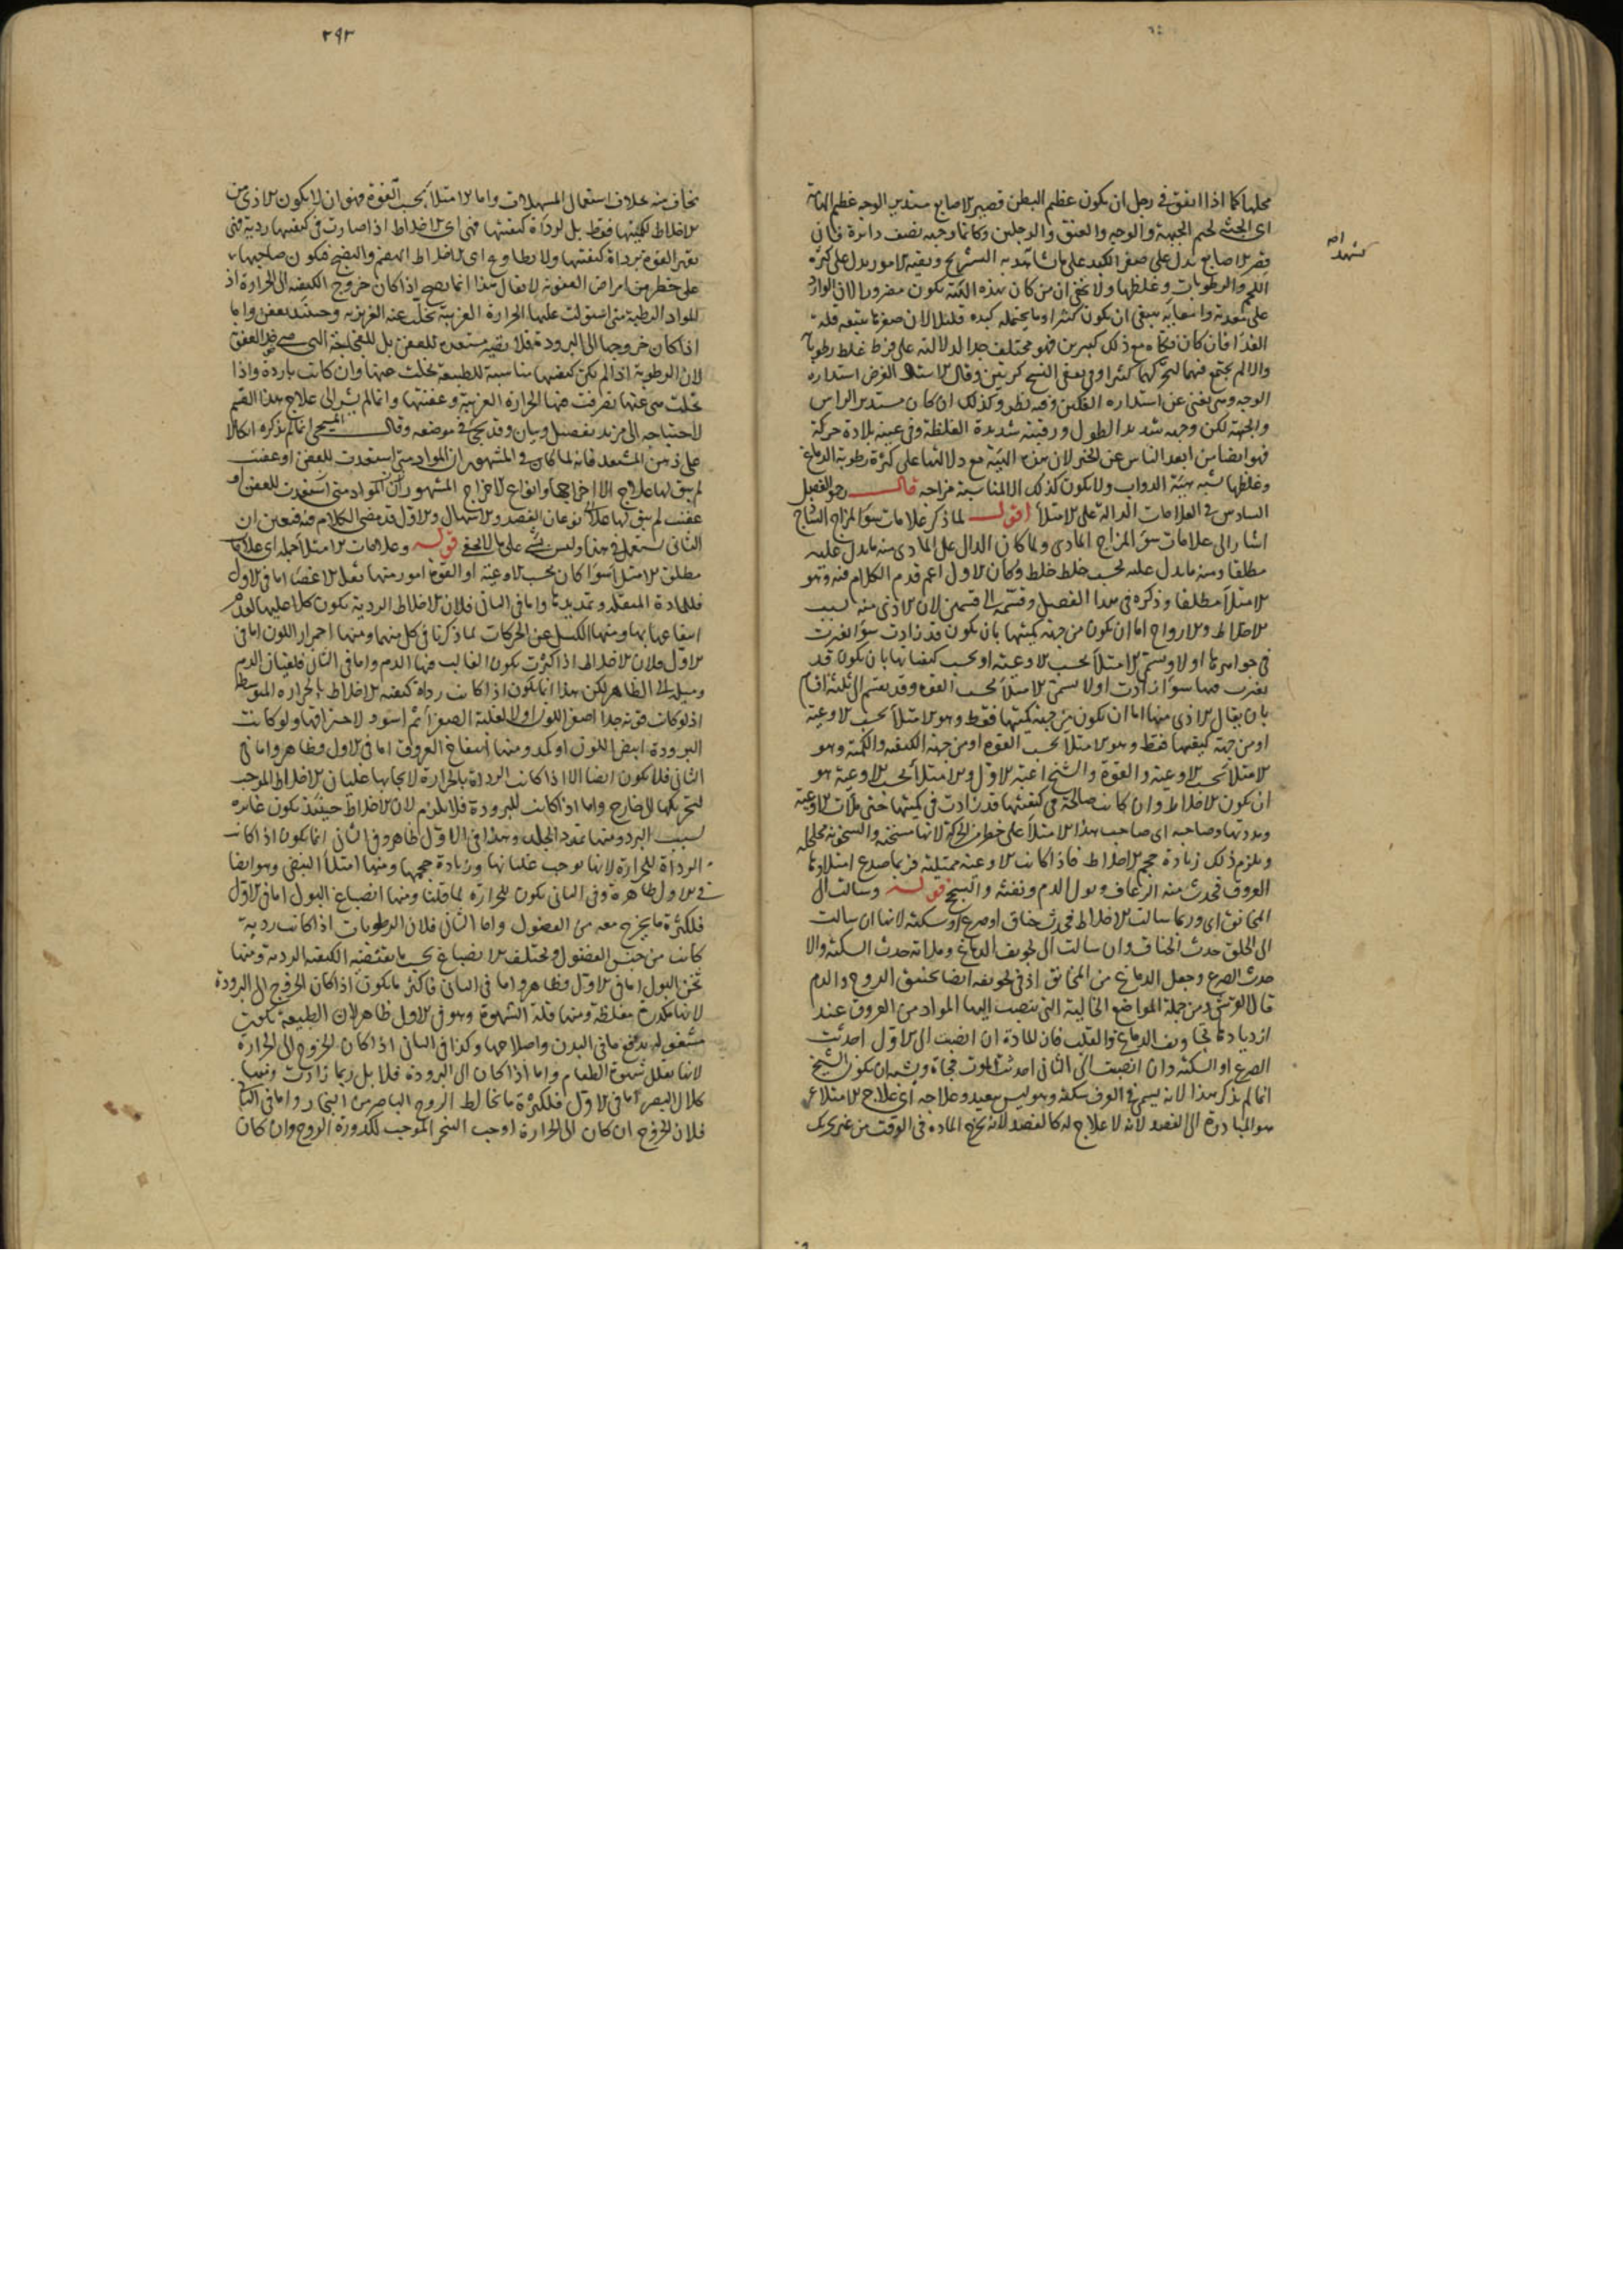 محلها كما اذا اتفق في رجل ان يكون عظيم البطن قصير الاصابع مستدير الوجه عظيم الهامة
اى الجثة لحيم الجبهة والوجه والعنق والرجلين وكانما وجهه نصف دائرة فان
قصر الاصابع يدل على صغر الكبد على ما شاهد به التشريح وبقية الامور يدل على كثرة
اللحم والرطوبات وغلظها ولا يخفى ان من كان بهذه الهيئة يكون مضرورا لان الوارد
على معدته وامعائه ينبغى ان يكون كثيرا وما يحتمله كبده قليلا لان صغرها يتبعه قلة
الغذا فان كان فكاه مع ذلك كبيرين فهو مختلف جدا لدلالته على فرط غلظ رطوباته
والا لم يجتمع فيهما لتحركهما كثيرا وفي بعض النسخ كريتين وقال الاستاد الغرض استدارة
الوجه وهى يغنى عن استدارة الفكين وفيه نظر وكذلك ان كان مستدير الراس
والجبهة لكن وجهه شديد الطول ورقبته شديدة الغلظة وفى عينيه بلادة حركة
فهو ايضا من ابعد الناس عن الخير لان هذه الهيئة مع دلالتها على كثرة رطوبة الدماغ
وغلظها يشبه هيئة الدواب ولا يكون كذلك الا لمناسبة مزاجه قال رحمه الله الفصل
السادس في العلامات الدالة على الامتلأ اقول لما ذكر علامات سوء المزاج الساذج
اشار الى علامات سوء المزاج المادى ولما كان الدال على المادى منه ما يدل عليه
مطلقا ومنه ما يدل عليه بحسب خلط خلط وكان الاول اعم قدم الكلام فيه وهو
الامتلأ مطلقا وذكره فى هذا الفصل وقسمه الى قسمين لان الاذى منه بسبب
الاخلاط والارواح اما ان يكون من جهة كميتها بان يكون قد زادت سوا تغيرت
فى جواهرها اولا ويسمى الامتلأ بحسب الاوعية او بحسب كيفياتها بان يكون قد
تغيرت فيها سوا زادت اولا يسمى الامتلأ بحسب القوة وقد يقسم الى ثلثة اقسام
بان يقال الاذى منها اما ان يكون من جهة كميتها فقط وهو الامتلأ بحسب الاوعية
او من جهة كيفيتها فقط وهو الامتلأ بحسب القوة او من جهة الكيفية والكمية وهو
الامتلأ بحسب الاوعية والقوة والشيخ اعتبر الاول والامتلأ بحسب الاوعية هو
ان يكون الاخلاط وان كانت صالحة فى كيفيتها قد زادت فى كميتها حتى ملأت الاوعية
ومددتها وصاحبه اى صاحب هذا الامتلأ على خطر من الحركة لانها مسخنة والسخونة مخلخلة
ويلزم ذلك زيادة حجم الاخلاط فاذا كانت الاوعية ممتلئة فربما صدع امتلاؤها
العروق فحدث منه الرعاف وبول الدم ونفثه والسحج قوله وسالت الى
المخانق اى وربما سالت الاخلاط فحدث خناق او صرع او سكتة لانها ان سالت
الى الحلق حدث الخناق وان سالت الى تجويف الدماغ وملأته حدث السكتة والا
حدث الصرع وجعل الدماغ من المخانق اذ فى تجويفه ايضا يختنق الروح والدم
قال القرشى ومن جملة المواضع الخالية التى ينصب اليها المواد من العروق عند
ازديادها تجاويف الدماغ والقلب فان المادة ان انصبت الى الاول احدثت
الصرع او السكتة وان انصبت الى الثانى احدثت الموت فجأة ويشبه ان يكون الشيخ
انما لم يذكر هذا لانه يسمى فى العرف سكتة وهو ليس ببعيد وعلاجه اى علاج الامتلاء
هو المبادرة الى الفصد لانه لا علاج له كالفصد لانه يخرج المادة فى الوقت من غير تحريك
٢٩٣
يخاف منه بخلاف استعمال المسهلات واما الامتلأ بحسب القوة فهو ان لا يكون الاذى من
الاخلاط لكميتها فقط بل لرداءة كيفيتها فهى اى الاخلاط اذا صارت فى كيفيتها ردية فهى
تقهر القوة برداءة كيفيتها ولا يطاوع اى الاخلاط الهضم والنضج فيكون صاحبها
على خطر من امراض العفونة لا يقال هذا انما يصح اذا كان خروج الكيفية الى الحرارة اذ
المواد الرطبة متى استولت عليها الحرارة الغريبة تخلت عنه الغريزية وحينئذ يعفن واما
اذا كان خروجها الى البرودة فلا يصير مستعدة للعفن بل للفجاجة التى هى ضد العفن
لان الرطوبة اذا لم يكن كيفيتها مناسبة للطبيعة تخلت عنها وان كانت باردة واذا
تخلت هى عنها تصرفت فيها الحرارة الغريبة وعفنتها وانما لم يشر الى علاج هذا القسم
لاحتياجه الى مزيد تفصيل وبيان وقد يجئ في موضعه وقال المسيحى انما لم يذكره اتكالا
على ذهن المستعد فانه لما كان فى المشهور ان المواد متى استعدت للعفن او عفنت
لم يبق لها علاج الا اخراجها وانواع الاخراج المشهور ان المواد متى استعدت للعفن او
عفنت لم يبق لها علاج نوعان الفصد والاسهال والاول قد مضى الكلام فيه فتعين ان
الثانى يستعمل فى هذا وليس بشئ على ما لا يخفى قوله وعلامات الامتلأ جملة اى علامات
مطلق الامتلأ سوا كان بحسب الاوعية او القوة امور منها ثقل الاعضا اما فى الاول
فللمادة المثقلة وتمديدها واما فى الثانى فلان الاخلاط الردية يكون كلا عليها لعدم
انتفاعها بها ومنها الكسل عن الحركات لما ذكرنا فى كل منهما ومنها احمرار اللون اما فى
الاول فلان الاخلاط اذا كثرت يكون الغالب فيها الدم واما فى الثانى فلغليان الدم
وميله الى الظاهر لكن هذا انما يكون اذا كانت رداءة كيفية الاخلاط بالحرارة المتوسطة
اذ لو كانت قوية جدا اصفر اللون اولا لغلبة الصفرا ثم اسود لاحتراقها ولو كانت
البرودة ابيض اللون او كمد ومنها انتفاخ العروق اما فى الاول فظاهر واما فى
الثانى فلا يكون ايضا الا اذا كانت الرداءة بالحرارة لايجابها غليان الاخلاط الموجب
لتحريكها الى خارج واما اذا كانت للبرودة فلا يلزم لان الاخلاط حينئذ يكون غائرة
لسبب البرد ومنها تمدد الجلد وهذا فى الاول ظاهر وفى الثانى انما يكون اذا كانت
الرداءة للحرارة لانها توجب غليانها وزيادة حجمها ومنها امتلأ النبض وهو ايضا
فى الاول ظاهر وفى الثانى يكون للحرارة لما قلنا ومنها انصباغ البول اما فى الاول
فلكثرة ما يخرج معه من الفضول واما الثانى فلان الرطوبات اذا كانت ردية
كانت من جنس الفضول ويختلف الانصباغ بحسب ما يقتضيه الكيفية الردية ومنها
ثخن البول اما فى الاول فظاهر واما فى الثانى فاكثر ما يكون اذا كان الخروج الى البرودة
لانها مكدرة مغلظة ومنها قلة الشهوة وهو فى الاول ظاهر لان الطبيعة يكون
مشغولة بدفع ما فى البدن واصلاحها وكذا فى الثانى اذا كان الخروج الى الحرارة
لانها تقلل شهوة الطعام واما اذا كان الى البرودة فلا بل ربما زادت ومنها
كلال البصر اما فى الاول فلكثرة ما يخالط الروح الباصر من البخار واما فى الثانى
فلان الخروج ان كان الى الحرارة اوجب التبخر الموجب لكدورة الروح وان كان